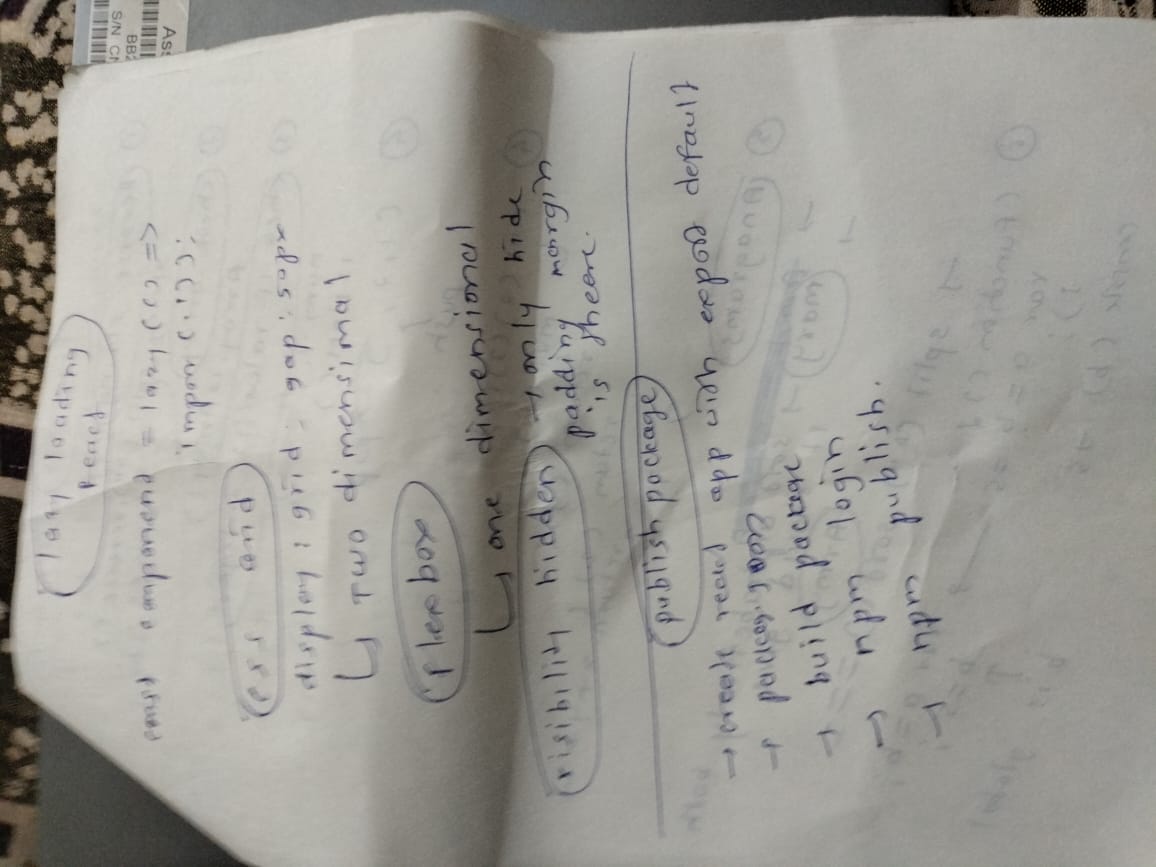 lazy loading
react
const component = lazy ( ( ) =>
import ( ' ' ) ) ;
css grid
display : grid ; gap : 50px
↳ Two dimensimal
flexbox
↳ one dimensional
visibility hidden → only hide
padding margin
is there.
publish package
→ create react app with export default
→ package.json
→ build package
→ npm login
→ npm publish.
S/N